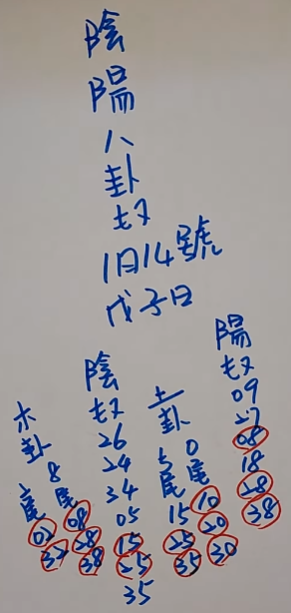 陰陽八卦
1月14號
戊子日
木卦
2尾 02 32
8尾 08 28 38
陰
26 24 34 05 15 25 35
土卦
5尾 15 25 35
0尾 10 20 30
陽
09 27 08 18 28 38